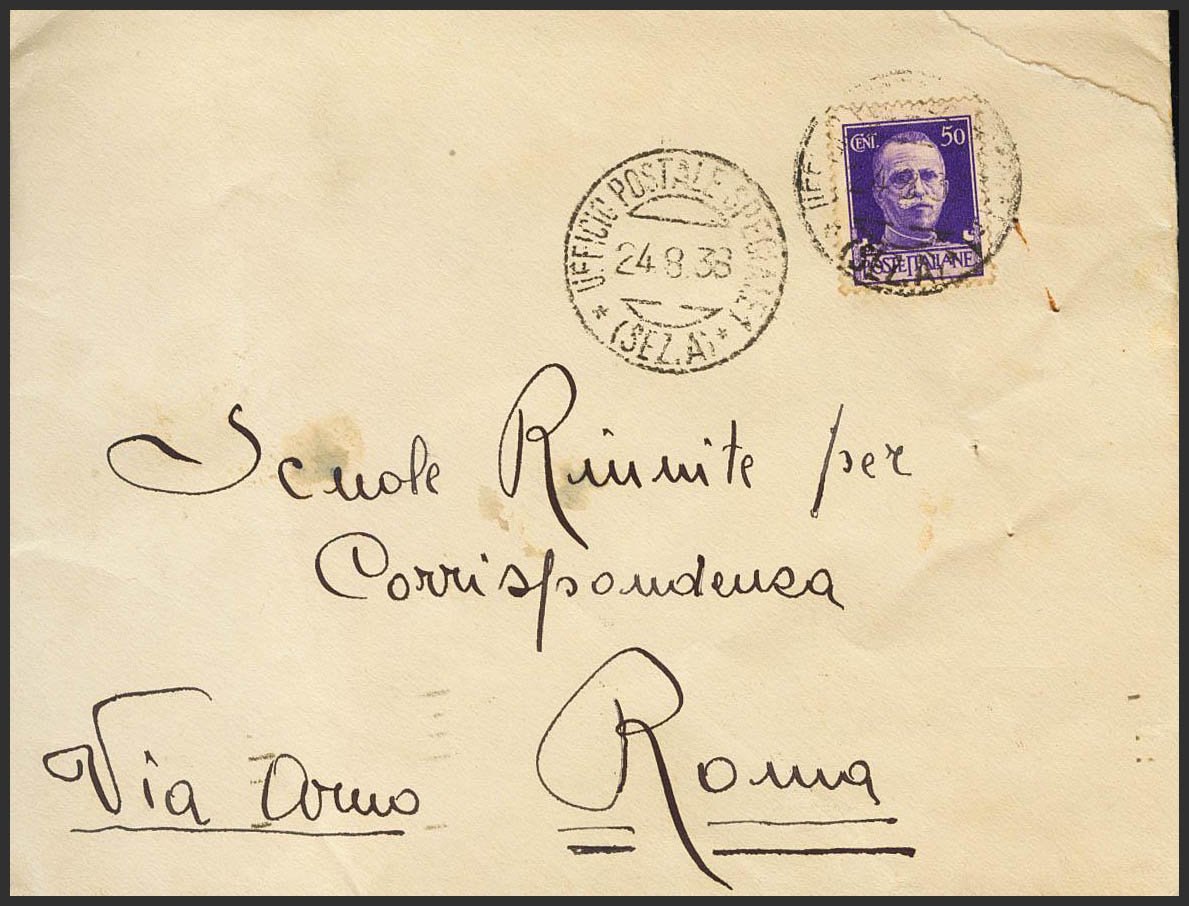 CENT. 50
POSTE ITALIANE
UFFICIO POSTALE SPECIALE 1
24.8.38
* (SEZ.A) *
UFF
(SEZ.A)
Scuole Riunite per
Corrispondenza
Via Arno Roma